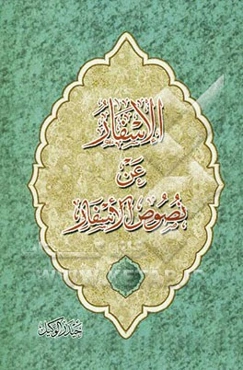 الإسفار
عن
نصوص الأسفار
حيدر الوكيل